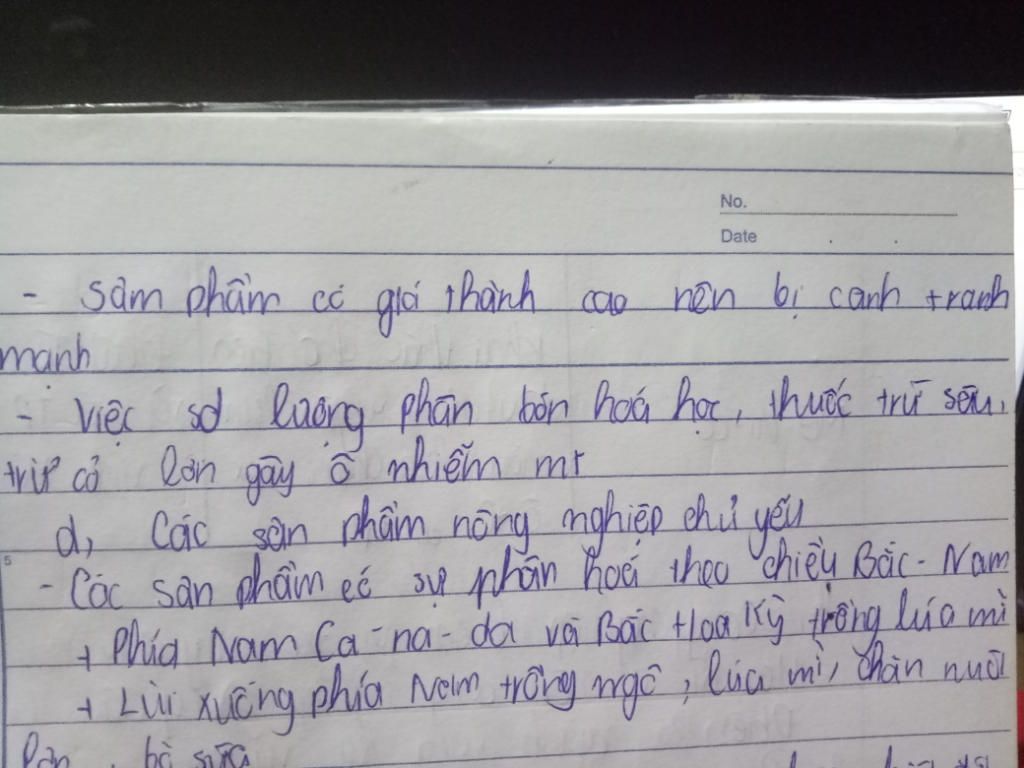 No.
Date
- sản phẩm có giá thành cao nên bị cạnh tranh
mạnh
- Việc sd lượng phân bón hoá học, thuốc trừ sâu,
trừ cỏ lớn gây ô nhiễm mt
d, Các sản phẩm nông nghiệp chủ yếu
5
- Các sản phẩm có sự phân hoá theo chiều Bắc - Nam
+ Phía Nam Ca-na-da và Bắc Hoa Kỳ trồng lúa mì
+ Lùi xuống phía Nam trồng ngô, lúa mì, chăn nuôi
lợn, bò sữa